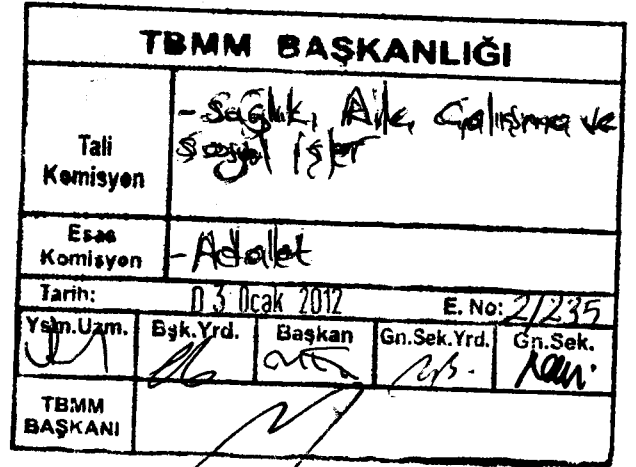 TBMM BAŞKANLIĞI
Tali
Komisyon
- Sağlık, Aile, Çalışma ve
Sosyal İşler
Esas
Komisyon
- Adalet
Tarih:
03 Ocak 2012
E. No: 2/235
Ysm.Uzm.
Bşk.Yrd.
Başkan
Gn.Sek.Yrd.
Gn.Sek.
TBMM
BAŞKANI